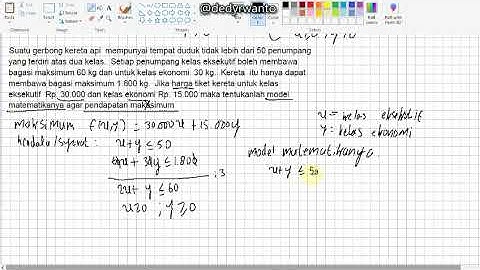 @dedyrwanto
Suatu gerbong kereta api mempunyai tempat duduk tidak lebih dari 50 penumpang
yang terdiri atas dua kelas. Setiap penumpang kelas eksekutif boleh membawa
bagasi maksimum 60 kg dan untuk kelas ekonomi 30 kg. Kereta itu hanya dapat
membawa bagasi maksimum 1.800 kg. Jika harga tiket kereta untuk kelas
eksekutif Rp. 30.000 dan kelas ekonomi Rp. 15.000 maka tentukanlah model
matematikanya agar pendapatan maksimum
maksimum f(x,y) = 30.000x + 15.000y
kendala/syarat : x+y ≤ 50
60x + 30y ≤ 1.800
: 3
2x + y ≤ 60
x≥0 ; y≥0
x = kelas eksekutif
y = kelas ekonomi
model matematikanya
x+y ≤ 50